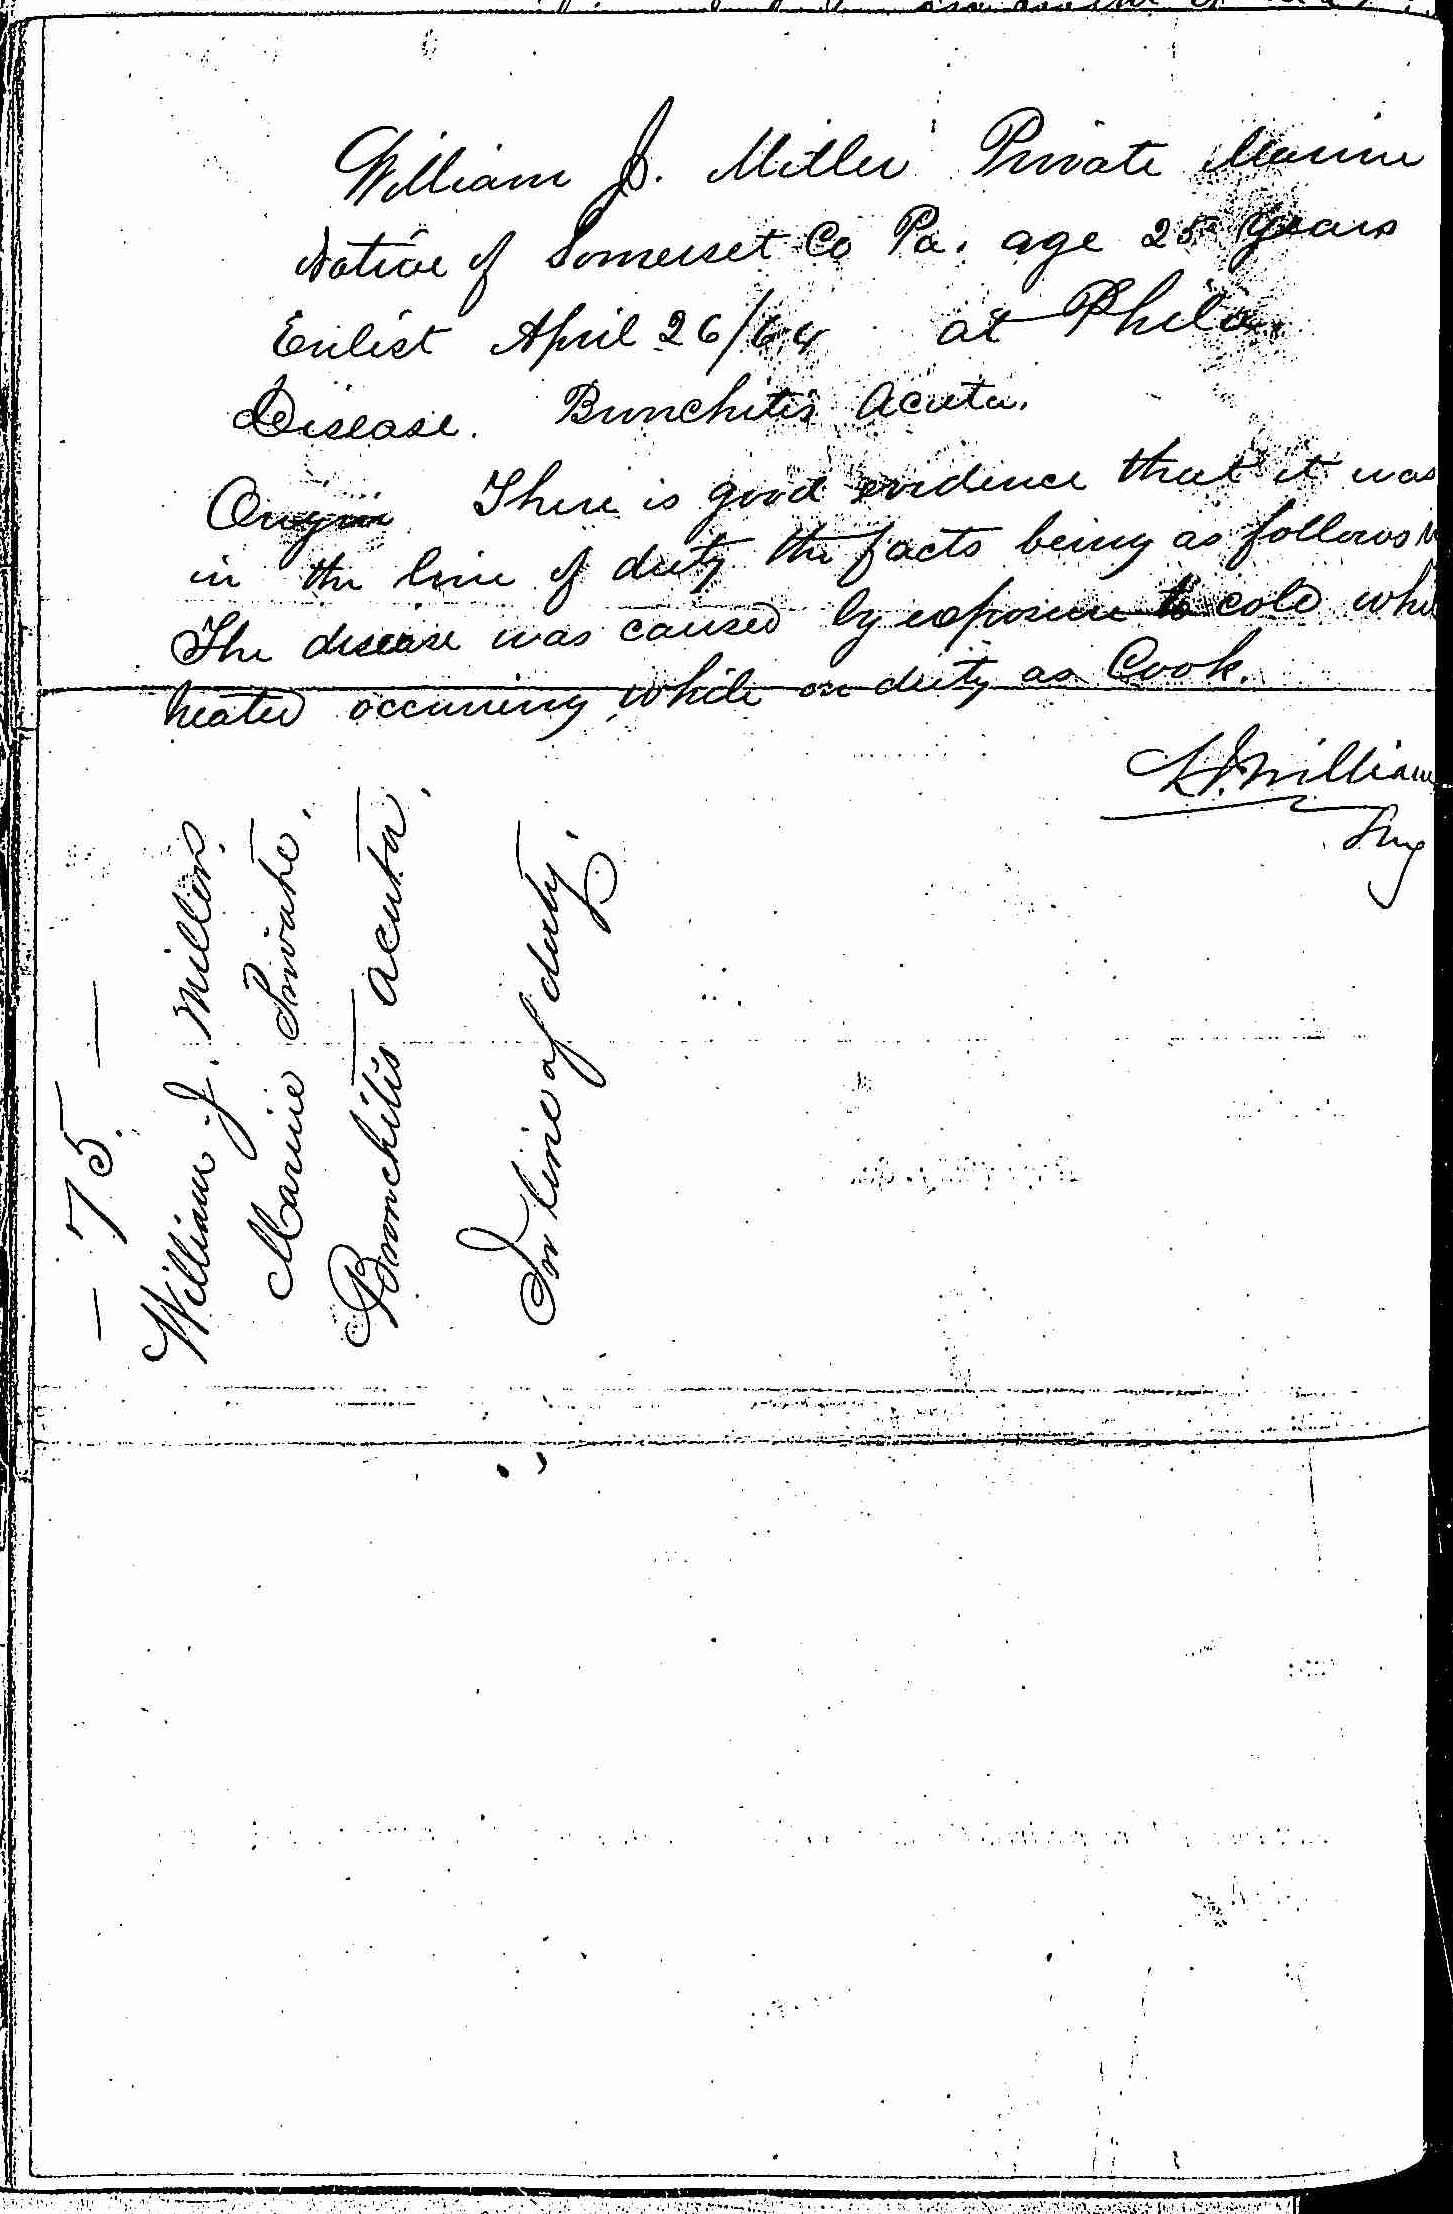 William J. Miller Private Marine
Native of Somerset Co Pa. age 25 years
Enlist April 26/64 at Phila.
Disease. Bronchitis Acuta.
Origin There is good evidence that it was
in the line of duty the facts being as follows
The disease was caused by exposure to cold whi
heated occurring while on duty as Cook.
Williams
Surg
— 75. —
William J. Miller.
Marine Private.
Bronchitis acuta.
In line of duty.